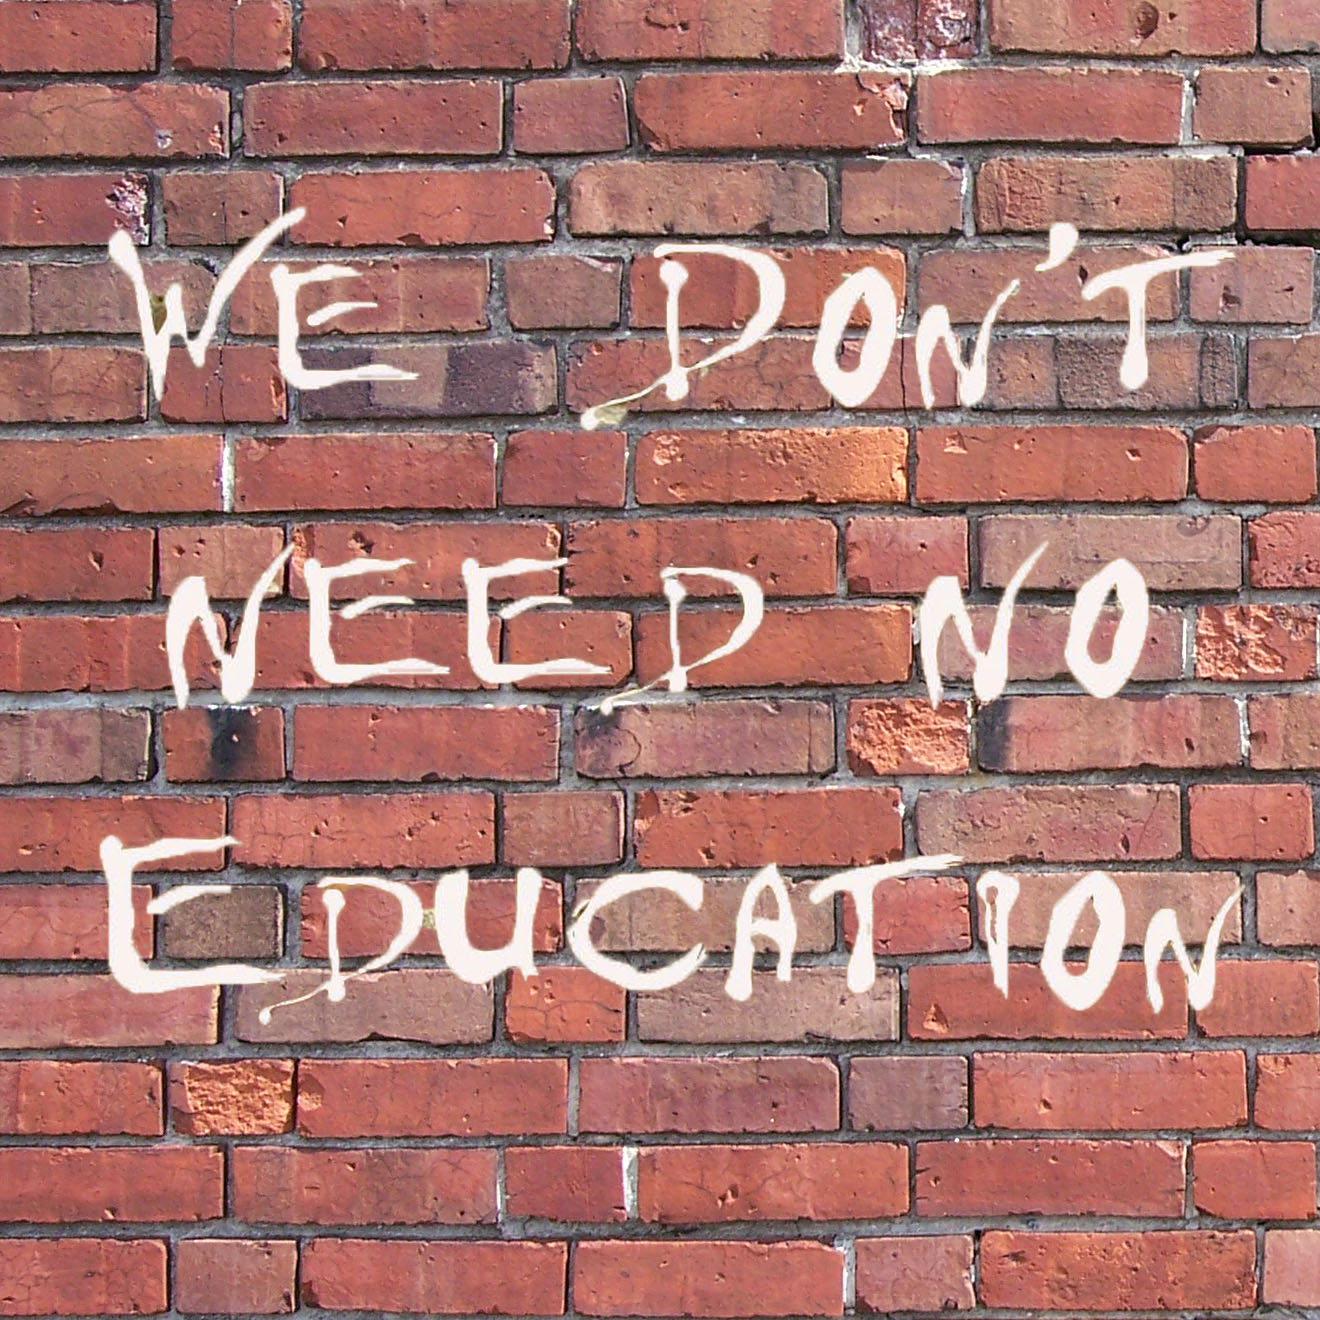 We Don't
need no
Education